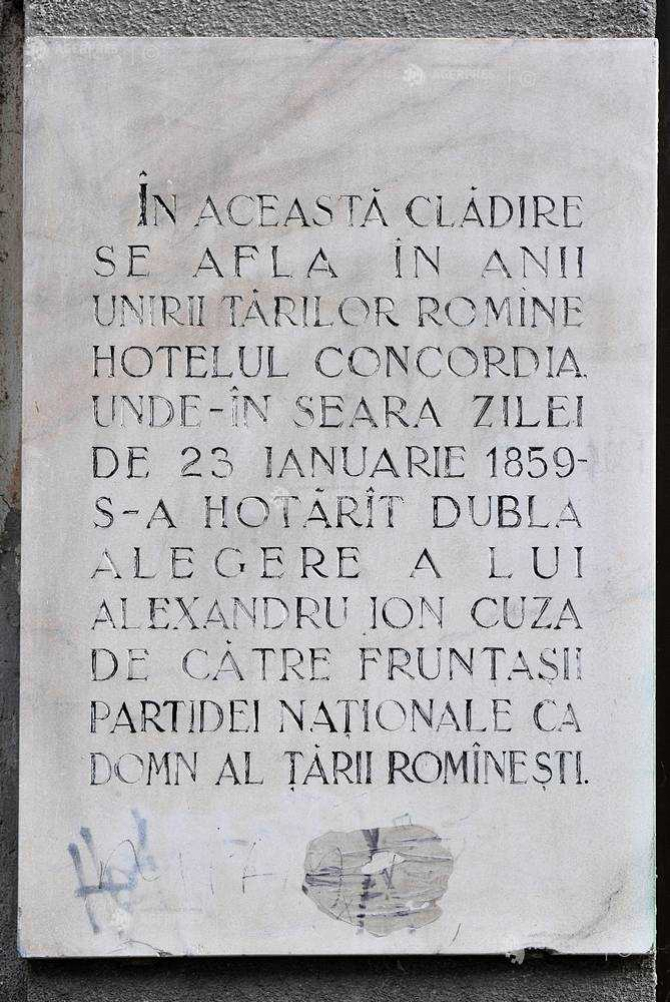 AGERPRES ©
AGERPRES ©
ÎN ACEASTĂ CLĂDIRE
SE AFLA ÎN ANII
UNIRII ȚĂRILOR ROMÎNE
HOTELUL CONCORDIA.
UNDE-ÎN SEARA ZILEI
DE 23 IANUARIE 1859-
S-A HOTĂRÎT DUBLA
ALEGERE A LUI
ALEXANDRU ION CUZA
DE CĂTRE FRUNTAȘII
PARTIDEI NAȚIONALE CA
DOMN AL ȚĂRII ROMÎNEȘTI.